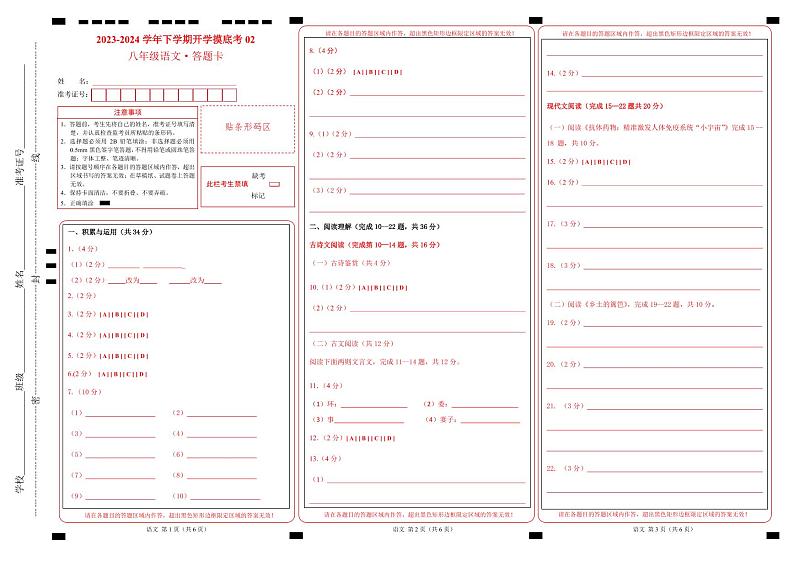 学校
班级
姓名
准考证号
密
封
线
2023-2024 学年下学期开学摸底考 02
八年级语文·答题卡
姓 名：
准考证号：
注意事项
1．答题前，考生先将自己的姓名，准考证号填写清
楚，并认真检查监考员所粘贴的条形码。
2．选择题必须用 2B 铅笔填涂；非选择题必须用
0.5mm 黑色签字笔答题，不得用铅笔或圆珠笔答
题；字体工整、笔迹清晰。
3．请按题号顺序在各题目的答题区域内作答，超出
区域书写的答案无效；在草稿纸、试题卷上答题
无效。
4．保持卡面清洁，不要折叠、不要弄破。
5．正确填涂
贴条形码区
此栏考生禁填
缺考
标记
一、积累与运用（共 34 分）
1.（4 分）
（1）（2 分）
（2）（2 分）____改为____ ____改为____
2.（2 分）
3.（2 分）[A] [B] [C] [D]
4.（2 分）[A] [B] [C] [D]
5.（2 分）[A] [B] [C] [D]
6.(2 分） [A] [B] [C] [D]
7.（10 分）
（1） （2）
（3） （4）
（5） （6）
（7） （8）
（9） （10）
请在各题目的答题区域内作答，超出黑色矩形边框限定区域的答案无效！
语文 第 1 页（共 6 页）
请在各题目的答题区域内作答，超出黑色矩形边框限定区域的答案无效！
8.（4 分）
（1）（2 分） [A] [B] [C] [D]
（2）（2 分）
9.（1）（2 分）
（2）（2 分）
（3）（2 分）
二、阅读理解（完成 10—22 题，共 36 分）
古诗文阅读（完成第 10—14 题，共 16 分）
（一）古诗鉴赏（共 4 分）
10.（1）（2 分）[A] [B] [C] [D]
（2）（2 分）
（二）古文阅读（共 12 分）
阅读下面两则文言文，完成 11—14 题，共 12 分。
11.（4 分）
（1）环： （2）委：
（3）事 （4）妻子：
12.（2 分）[A] [B] [C] [D]
13.（4 分）
（1）
请在各题目的答题区域内作答，超出黑色矩形边框限定区域的答案无效！
语文 第 2 页（共 6 页）
请在各题目的答题区域内作答，超出黑色矩形边框限定区域的答案无效！
14.（2 分）
现代文阅读（完成 15—22 题共 20 分）
（一）阅读《抗体药物：精准激发人体免疫系统“小宇宙”》完成 15—
18 题，共 10 分。
15.（2 分）[A] [B] [C] [D]
16.（2 分）
17.（3 分）
18.（3 分）
（二）阅读《乡土的褐色》，完成 19—22 题，共 10 分。
19.（2 分）
20.（2 分）
21. （3 分）
22. （3 分）
请在各题目的答题区域内作答，超出黑色矩形边框限定区域的答案无效！
语文 第 3 页（共 6 页）